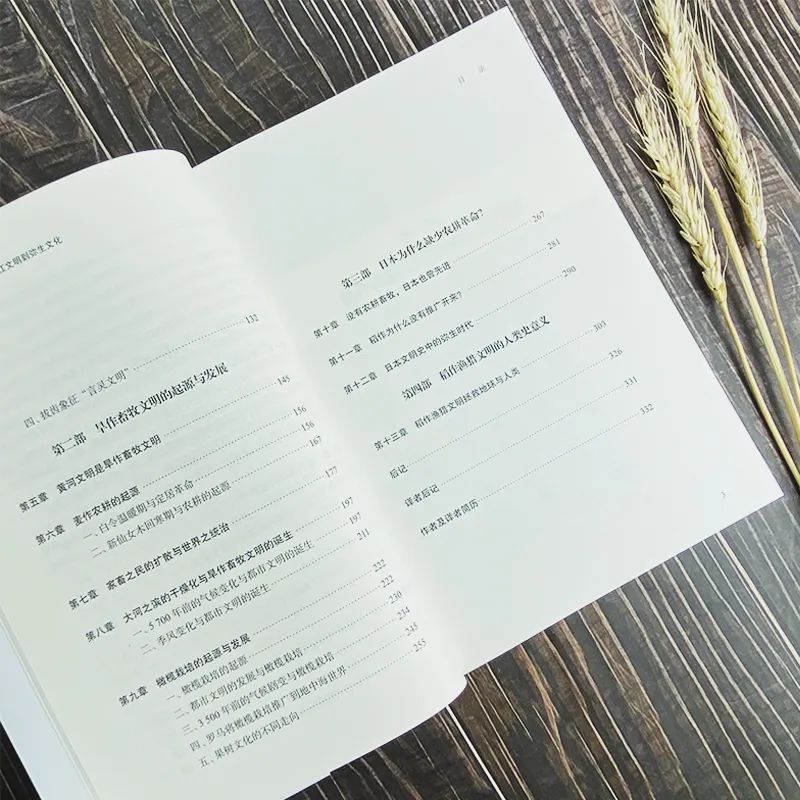 江文明到弥生文化
四、拔齿象征“言灵文明” 132
第二部 旱作畜牧文明的起源与发展
第五章 黄河文明是旱作畜牧文明 145
第六章 麦作农耕的起源 156
一、白令温暖期与定居革命 156
二、新仙女木回寒期与农耕的起源 167
第七章 家畜之民的扩散与世界之统治 177
第八章 大河之滨的干燥化与旱作畜牧文明的诞生 197
一、5 700 年前的气候变化与都市文明的诞生 197
二、季风变化与都市文明的诞生 211
第九章 橄榄栽培的起源与发展 222
一、橄榄栽培的起源 222
二、都市文明的发展与橄榄栽培 230
三、3 500 年前的气候剧变与橄榄栽培 234
四、罗马将橄榄栽培推广到地中海世界 245
五、果树文化的不同走向 255
目 录
第三部 日本为什么缺少农耕革命?
第十章 没有农耕畜牧，日本也曾先进 267
第十一章 稻作为什么没有推广开来? 281
第十二章 日本文明史中的弥生时代 290
第四部 稻作渔猎文明的人类史意义
第十三章 稻作渔猎文明拯救地球与人类 303
后记 326
译者后记 331
作者及译者简历 332
3